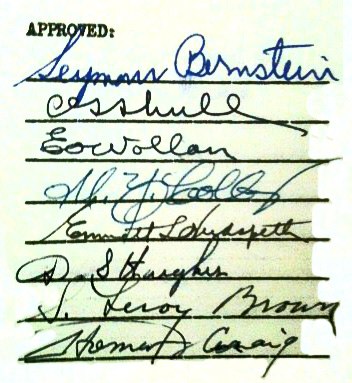 APPROVED:
Seymour Bernstein
C S Shull
E O Wollan
Emmett L Hudspeth
D. S Hughes
S. Leroy Brown
Homer L Craig